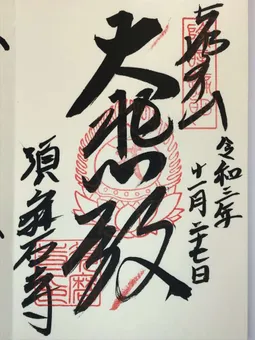 令和三年
十一月二十七日
大悲殿
須磨寺